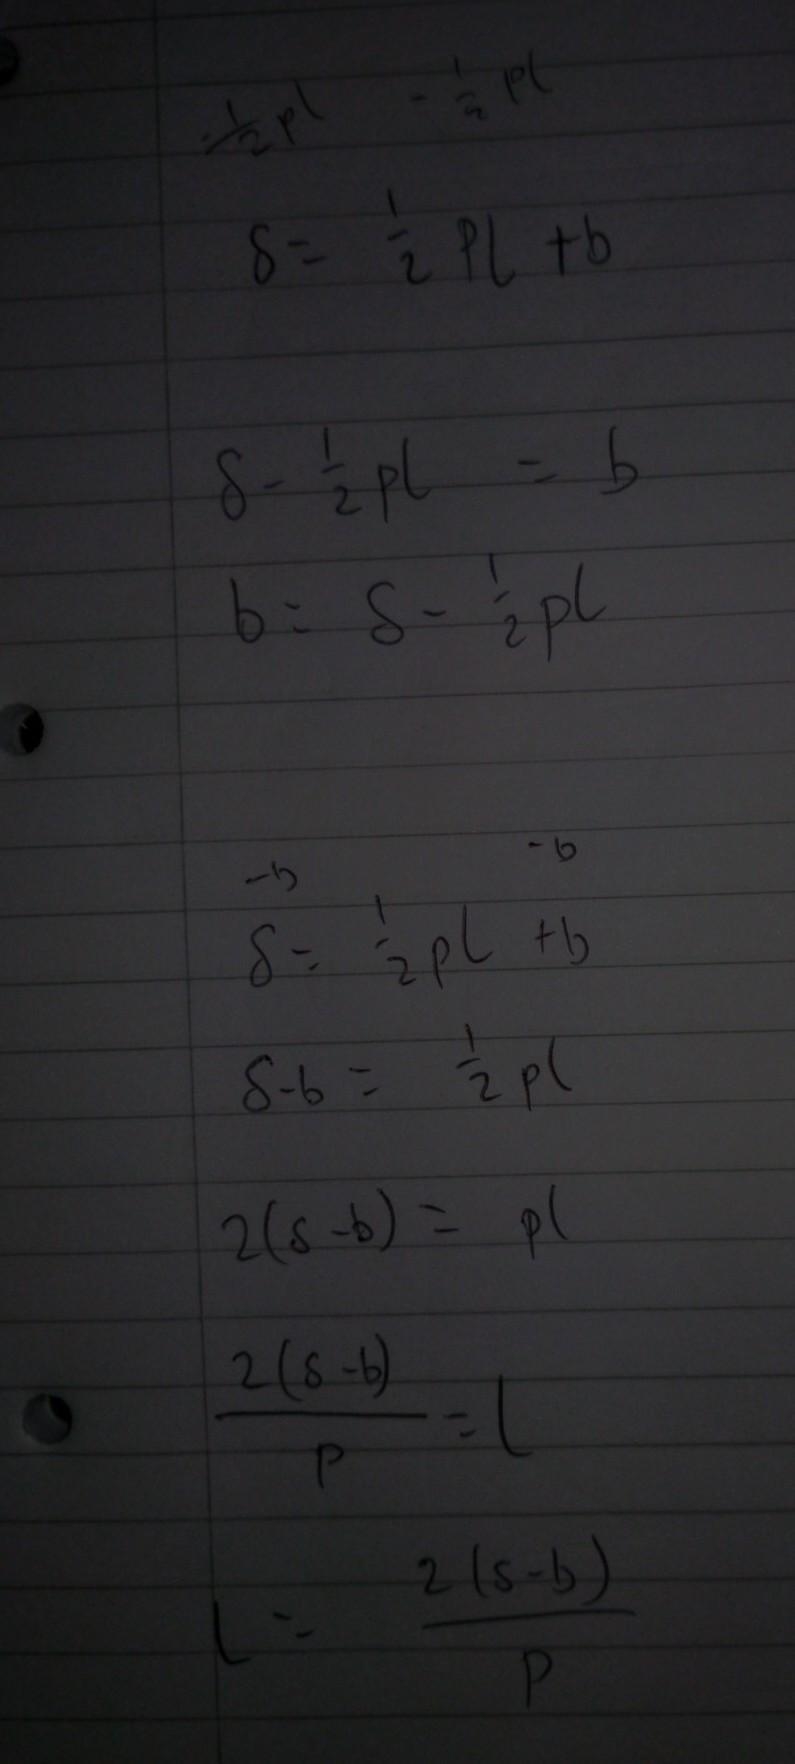 -½pl -½pl
S = ½ Pl + b
S - ½pl = b
b = S - ½pl
-b -b
S = ½pl + b
S-b = ½pl
2(S-b) = pl
2(S-b)/p = l
l = 2(S-b)/p